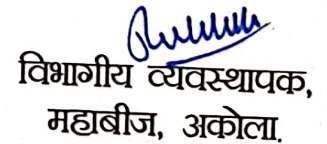 विभागीय व्यवस्थापक,
महाबीज, अकोला.